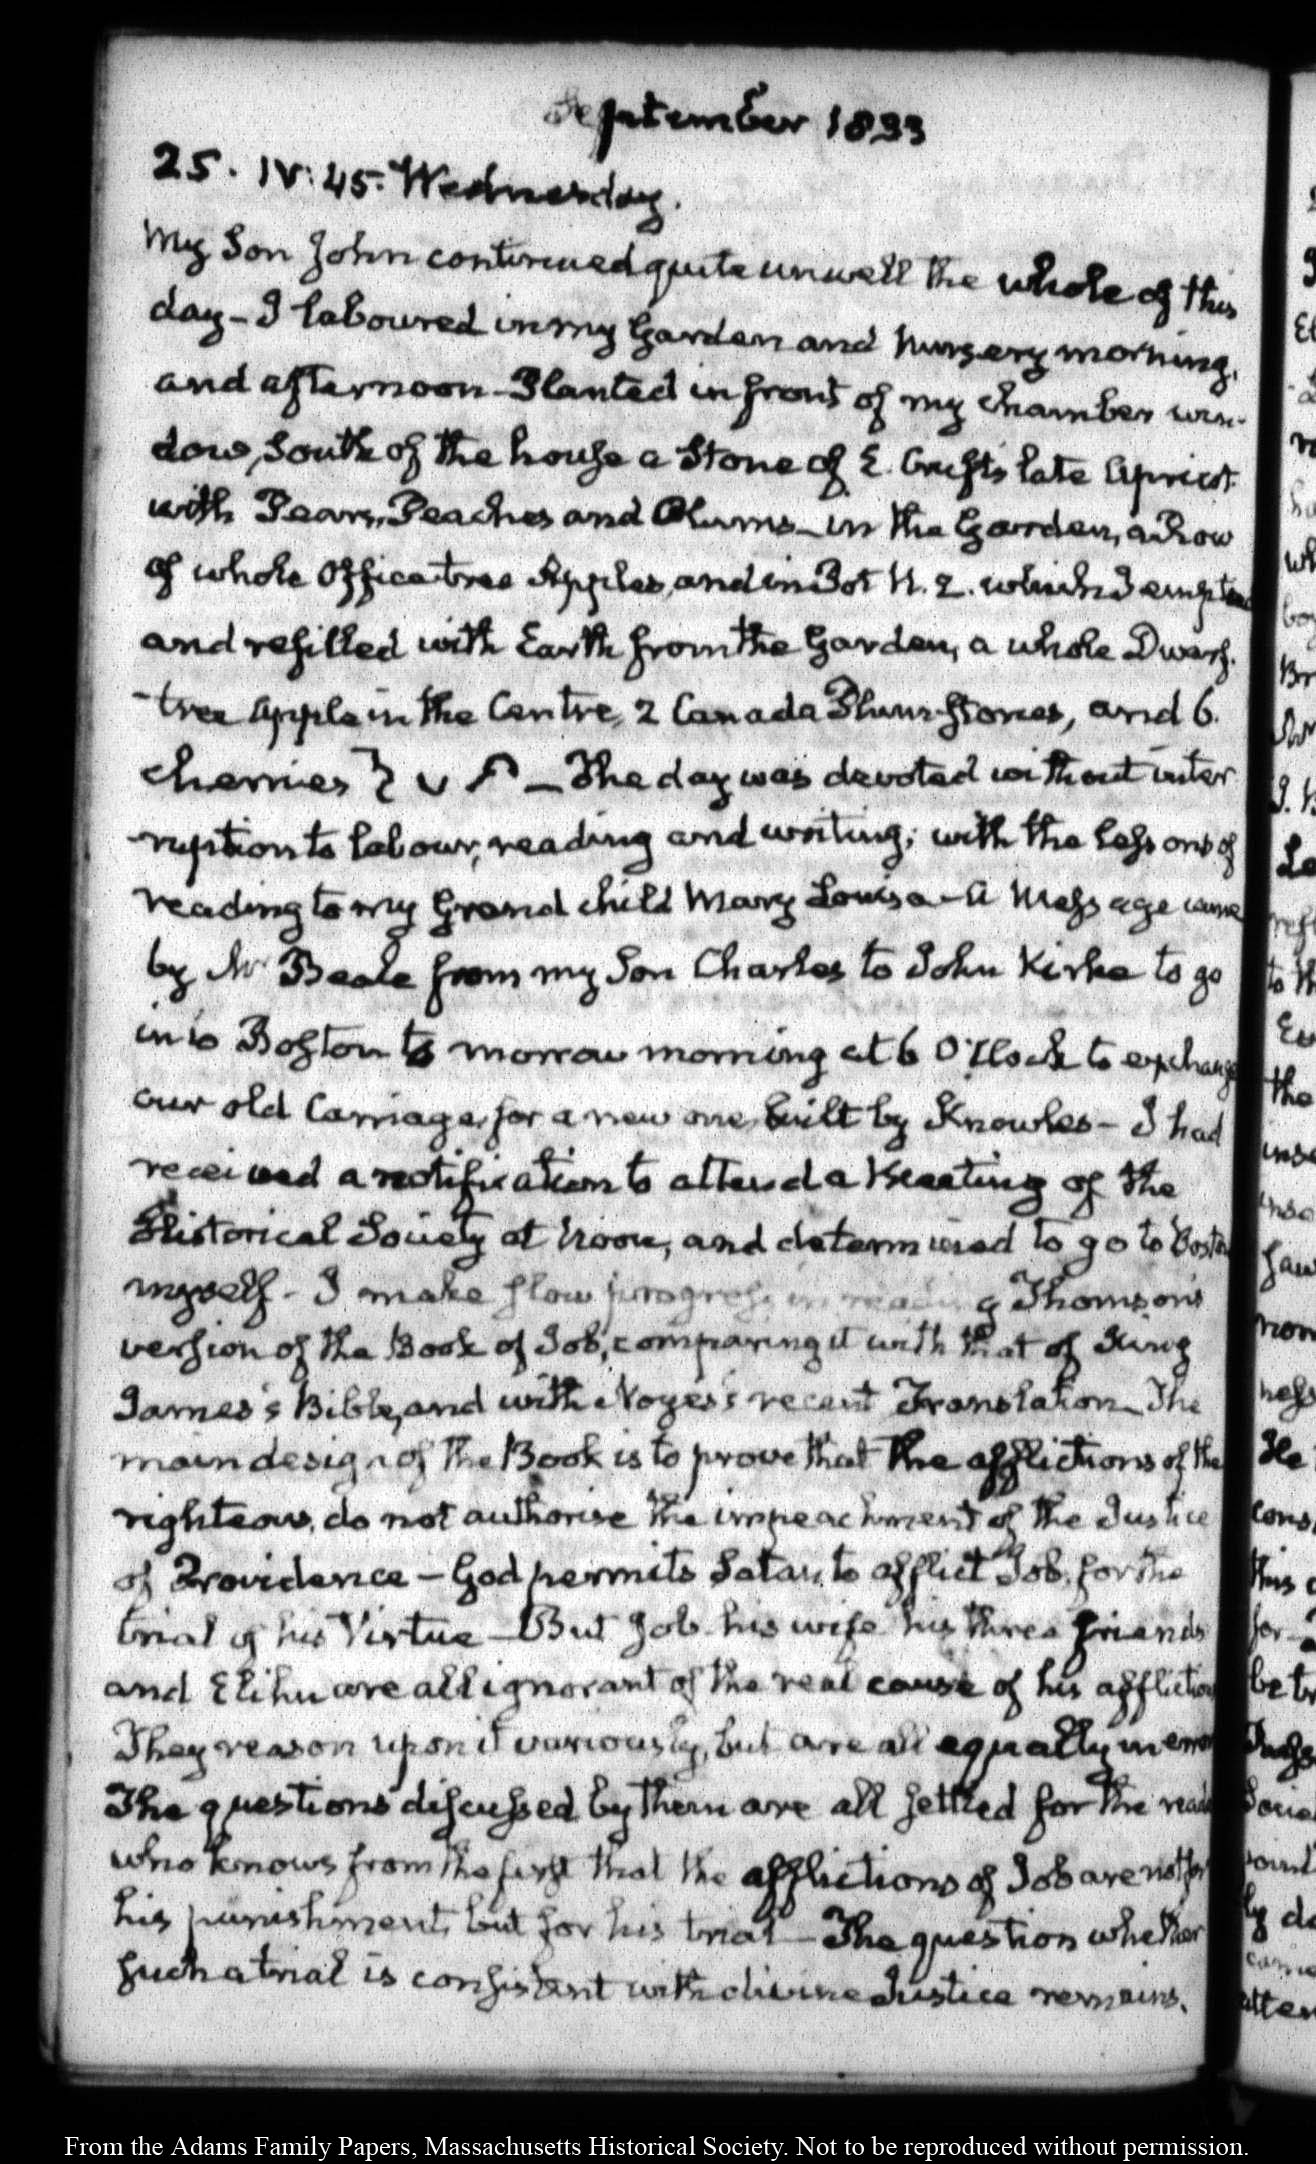 September 1833
25. IV: 45. Wednesday.
My Son John continued quite unwell the whole of this
day – I laboured in my Garden and Nursery morning,
and afternoon – Planted in front of my chamber win-
dow, South of the house a Stone of E. Crafts late Apricot
with Pears, Peaches and Plums – in the Garden, a Row
of whole Office tree Apples, and in Pot N. 2. which I emptied
and refilled with Earth from the Garden, a whole Dwarf-
-tree apple in the Centre, 2 Canada Plum stones, and 6.
cherries – The day was devoted without inter
-ruption to labour, reading and writing; with the lessons of
reading to my Grand child Mary Louisa – A Message came
by Mr Beale from my Son Charles to John Kirke to go
into Boston to morrow morning at 6 O'Clock to exchange
our old Carriage, for a new one, built by Knowles – I had
received a notification to attend a Meeting of the
Historical Society at Noon, and determined to go to Boston
myself – I make slow progress in reading Thomson's
version of the Book of Job, comparing it with that of King
James's Bible, and with Noyes's recent Translation – The
main design of the Book is to prove that the afflictions of the
righteous, do not authorise the impeachment of the Justice
of Providence – God permits Satan, to afflict Job, for the
trial of his Virtue – But Job his wife his three friends
and Elihu are all ignorant of the real cause of his affliction
They reason upon it variously, but are all equally in error
The questions discussed by them are all settled for the reader
who knows from the first that the afflictions of Job are not for
his punishment, but for his trial – The question whether
such a trial is consistent with divine Justice remains.
From the Adams Family Papers, Massachusetts Historical Society. Not to be reproduced without permission.